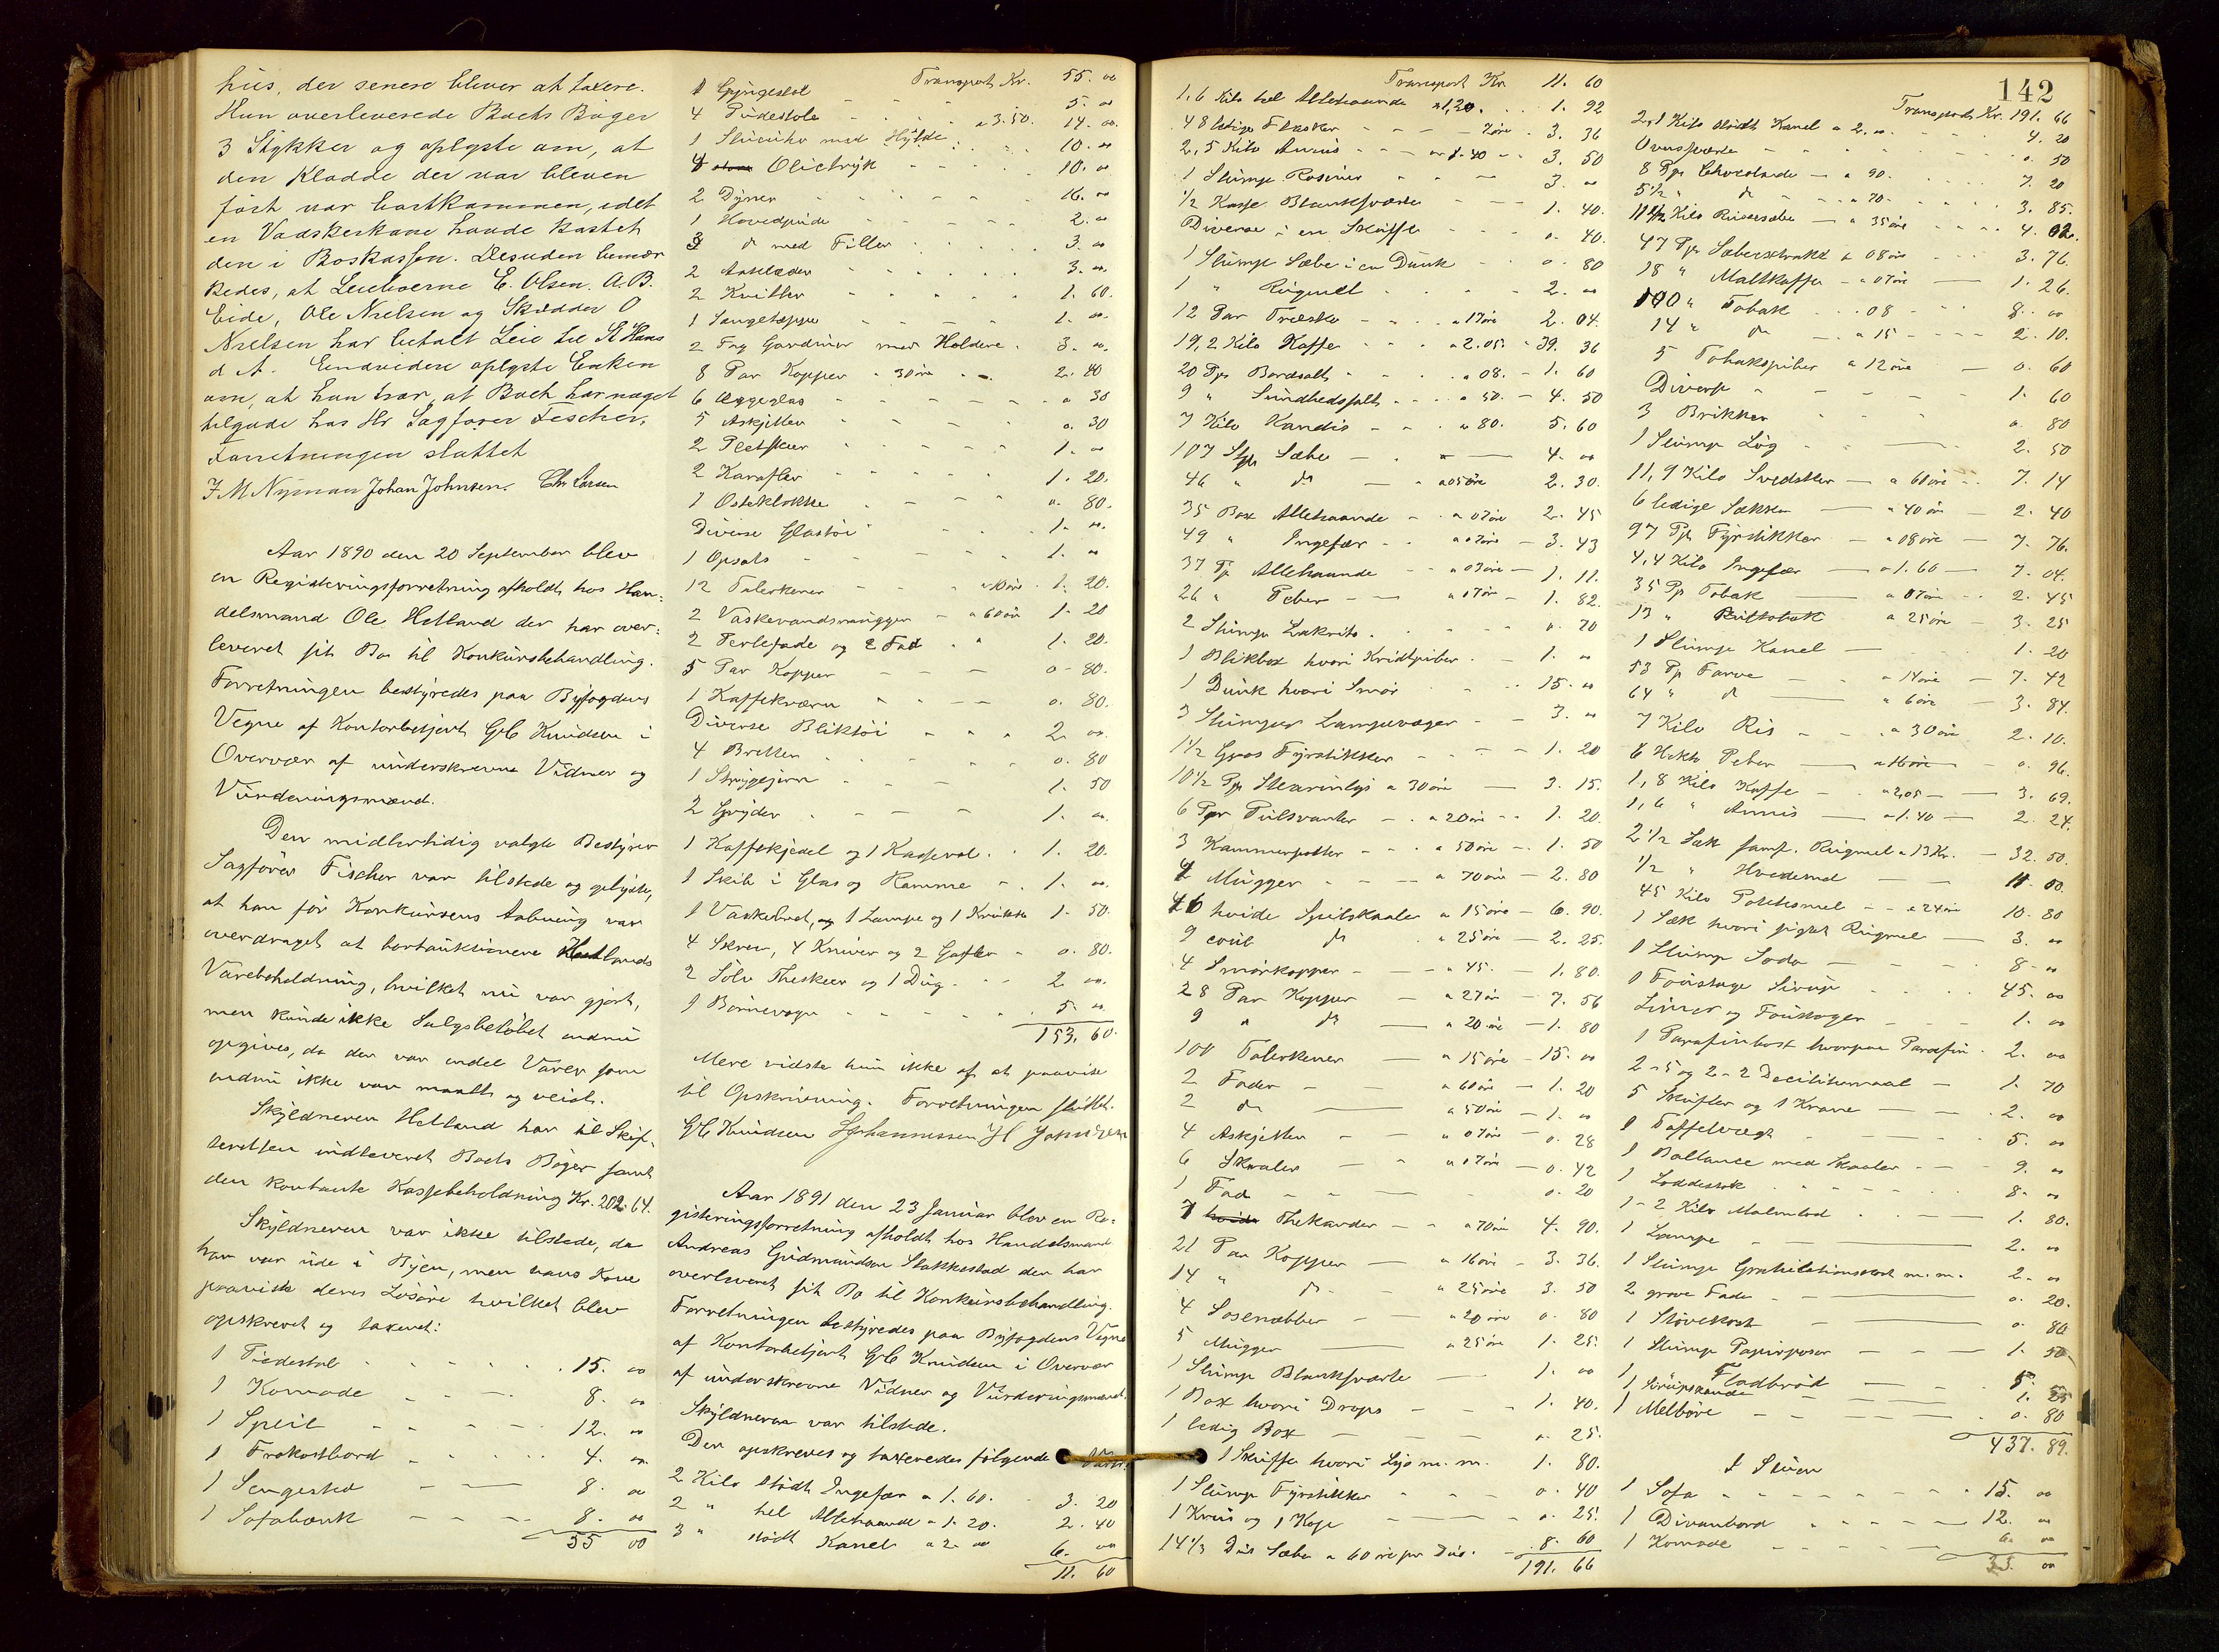 hus, der senere bliver at taxere.
Hun overleverede Boets Bøger
3 Stykker og oplyste om, at
den Kladde der var bleven
ført var bortkommen, idet
en Vadskerkone havde kastet
den i Boskassen. Desuden bemær
kedes, at Leieboerne E. Olsen. A.B.
Eide, Ole Nielsen og Skrædder O
Nielsen har betalt Leie til St Hans
d A. Endvidere oplyste Enken
om, at hun tror, at Boet har noget
tilgode hos Hr Sagfører Fischer.
Forretningen sluttet
J. M Nyman Johan Johnsen. Chr Larsen
Aar 1890 den 20 September blev
en Registreringsforretning afholdt hos Han-
delsmand Ole Hetland der har over-
leveret sit Bo til Konkursbehandling.
Forretningen bestyredes paa Byfogdens
Vegne af Kontorbetjent G.C. Knudsen i
Overvær af underskrevne Vidner og
Vurderingsmænd.
Den midlertidig valgte Bestyrer
Sagfører Fischer var tilstede og oplyste,
at han før Konkursens Aabning var
overdraget at bortauktionere Hetlands
Varebeholdning, hvilket nu var gjort,
men kunde ikke Salgsbeløbet endnu
opgives, da der var endel Varer som
endnu ikke var maalt og veiet.
Skyldneren Hetland har til Skif-
teretten indleveret Boets Bøger samt
den kontante Kassebeholdning Kr. 202. 64.
Skyldneren var ikke tilstede, da
han var ude i Byen, men hans Kone
paaviste deres Løsøre hvilket blev
opskrevet og taxeret:
1 Piedestal 15. 00
1 Komode 8. 00
1 Speil 12. 00
1 Frokostbord 4. 00
1 Sengested 8. 00
1 Sofabænk 8. 00
55 00
Transport Kr. 55. 00
1 Gyngestol 5. 00
4 Pudestole a 3.50. 14. 00.
1 Skuenke med Hylde 10. 00
4 Olietryk 10. 00
2 Dyner 16. 00
1 Hovedpude 2. 00
3 do med Filler 3. 00
2 Aaklæder 3. 00.
2 Kvitler 1. 60.
1 Sengetæppe 1. 00.
2 Fag Gardiner med Holdere. 3. 00.
8 Par Kopper a 30 øre 2. 40
6 Æggeglas 0 30
5 Askjetter 0. 30
2 Pletskeer 1. 00
2 Karafler 1. 20.
1 Osteklokke 0. 80.
Diverse Glastøi 1. 00.
1 Opsats 1. 00
12 Talerkener a 10 øre 1. 20.
2 Vaskevandsmugger a 60 øre 1. 20
2 Terlefade og 2 Fad 1. 20.
5 Par Kopper 0. 80.
1 Kaffekværn 0. 80.
Diverse Bliktøi 2. 00.
4 Bretter 0. 80
1 Strygejern 1. 50
2 Gryder 1. 00.
1 Kaffekjedel og 1 Kasserol 1. 20.
1 Skib i Glas og Ramme 1. 00.
1 Vaskebret, og 1 Lampe og 1 Krukke 1. 50.
4 Skeer, 4 Kniver og 2 Gafler 0. 80.
2 Sølv Theskeer og 1 Dug 2. 00.
1 Børnevogn 5. 00
153. 60.
Mere vidste hun ikke af at paavise
til Opskrivning. Forretningen sluttet.
G.C. Knudsen S Johannessen J H Johnsen
Aar 1891 den 23 Januar blev en Re-
gistreringsforretning afholdt hos Handelsmand
Andreas Gudmundsen Stakkestad der har
overleveret sit Bo til Konkursbehandling.
Forretningen bestyredes paa Byfogdens Vegne
af Kontorbetjent G.C. Knudsen i Overvær
af underskrevne Vidner og Vurderingsmænd.
Skyldneren var tilstede.
Der opskreves og taxeredes følgende Varer.
2 Kilo stødt Ingefær a 1. 60. 3. 20
2 " hel Allehaande a 1. 20. 2. 40
3 " stødt Kanel a 2. 00 6. 00
11. 60
Transport Kr 11. 60
1,6 Kilo hel Allehaande a 1,20. 1. 92
48 ledige Flasker 7 øre. 3. 36
2,5 Kilo Annis a 1.40 3. 50
1 Slump Rosiner 3. 00
1/2 Kasse Blanksværte 1. 40.
Diverse i en Skuffe 0. 40.
1 Slump Sæbe i en Dunk 0. 80
1 " Rugmel 2. 00
12 Par Træsko a 17 øre 2. 04.
19,2 Kilo Kaffe a 2.05. 39. 36
20 Pps Bordsalt a 08. 1. 60
9 " Sundhedssalt a 50. 4. 50
7 Kilo Kandis a 80. 5. 60
107 Stk Sæbe 4. 00
46 " do a 05 øre 2. 30.
35 Box Allehaande a 07 øre 2. 45
49 " Ingefær a 07 øre 3. 43
37 Pp Allehaande a 03 øre 1. 11.
26 " Peber a 07 øre 1. 82.
2 Slumpe Lakrits 0. 70
1 Blikbox hvori Kridtpiber 1. 00
1 Dunk hvori Smør 15. 00
3 Slumper Lampevæger 3. 00
1 1/2 Gros Fyrstikker 1. 20
10 1/2 Pp Stearinlys a 30 øre 3. 15.
6 Par Pulsvanter a 20 øre 1. 20.
3 Kammerpotter a 50 øre 1. 50
4 Mugger a 70 øre 2. 80
46 hvide Spilskaaler a 15 øre 6. 90.
9 coul do a 25 øre 2. 25.
4 Smørkopper a 45. 1. 80.
28 Par Kopper a 27 øre 7. 56
9 " do a 20 øre 1. 80
100 Talerkener a 15 øre 15. 00
2 Fader a 60 øre 1. 20
2 do a 50 øre 1. 00
4 Askjetter a 07 øre 0. 28
6 Skaaler a 07 øre 0. 42
1 Fad 0. 20
7 Thekander a 70 øre 4. 90.
21 Par Kopper a 16 øre 3. 36.
14 " do a 25 øre 3. 50
4 Sosenæbber a 20 øre 0. 80
5 Mugger a 25 øre 1. 25.
1 Slump Blanksværte 1. 00
1 Box hvori Drops 1. 40.
1 ledig Box 0. 25.
1 Skuffe hvori Lys m. m. 1. 80.
1 Slump Fyrstikker 0. 40
1 Krus og 1 Kop 0. 25.
14 1/3 Dus Sæbe a 60 øre pr Dus. 8. 60
191. 66
142
Transport Kr. 191. 66
2,1 Kilo stødt Kanel a 2. 00 4. 20
Ovnssværte 0. 50
8 Pps Chocolade a 90. 7. 20
5 1/2 " do a 70. 3. 85.
11 1/2 Kilo Russesæbe a 35 øre 4. 02.
47 Pps Sæbeextrakt a 08 øre 3. 76.
18 " Maltkaffe a 07 øre 1. 26.
100 " Tobak 08 8. 00
14 " do a 15 2. 10.
5 Tobakspiber a 12 øre 0. 60
Diverse 1. 60
3 Brikker 0. 80
1 Slump Løg 2. 50
11,9 Kilo Svedsker a 60 øre 7. 14
6 ledige Sækker a 40 øre 2. 40
97 Pp Fyrstikker a 08 øre 7. 76.
4,4 Kilo Ingefær a 1. 60 7. 04.
35 Pp Tobak a 07 øre 2. 45
13 " Rultobak a 25 øre 3. 25
1 Slump Kanel 1. 20
53 Pp Farve a 14 øre 7. 42
64 " do a 6 øre 3. 84.
7 Kilo Ris a 30 øre 2. 10.
6 Hekto Peber a 16 øre 0. 96.
1,8 Kilo Kaffe a 2,05 3. 69.
1,6 " Annis a 1.40 2. 24.
2 1/2 Sæk samf. Rugmel a 13 Kr. 32. 50.
1/2 " Hvedemel 11. 00.
45 Kilo Potetesmel a 24 øre 10. 80
1 Sæk hvori sigtet Rugmel 3. 00
1 Slump Soda 8. 00
1 Foustage Sirup 45. 00
Limer og Foustager 1. 00
1 Parafinkost hvorpaa Parafin 2. 00
2-5 og 2-2 Decilitermaal 1. 70
5 Skufler og 1 Krane 2. 00
1 Taffelvægt 5. 00
1 Ballance med Skaaler 9. 00
1 Loddestok 8. 00
1-2 Kilo Malmlod 1. 80.
1 Lampe 2. 00
1 Slump Gratulationskort m.m. 2. 00
2 grove Fade 0. 20.
1 Støvekost 0. 80
1 Slump Papirposer 1. 50
1 Fladbrød 5. 00
1 Sirupskande 1. 25
1 Melbøre 0. 80
437. 89.
I Stuen
1 Sofa 15. 00
1 Divanbord 12. 00
1 Komode 6. 00
33. 00